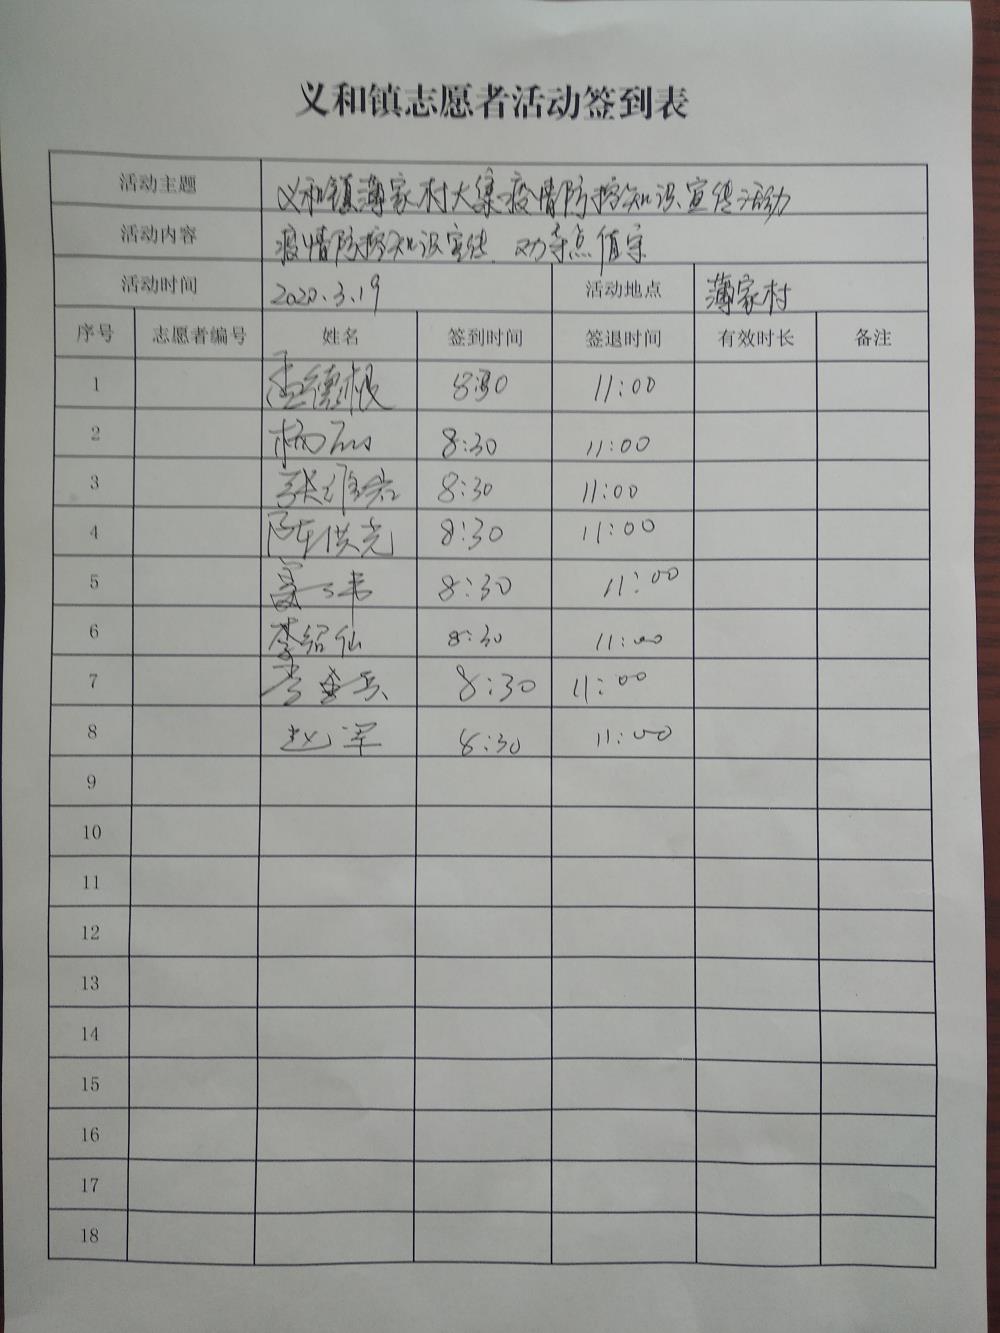 义和镇志愿者活动签到表
活动主题 义和镇薄家村大集疫情防控知识宣传活动
活动内容 疫情防控知识宣传 劝导点值守
活动时间 2022.3.19 活动地点 薄家村
序号 志愿者编号 姓名 签到时间 签退时间 有效时长 备注
1 孟德根 8:30 11:00
2 杨 8:30 11:00
3 张维宏 8:30 11:00
4 陈供光 8:30 11:00
5 8:30 11:00
6 李绍仙 8:30 11:00
7 8:30 11:00
8 赵军 8:30 11:00
9
10
11
12
13
14
15
16
17
18